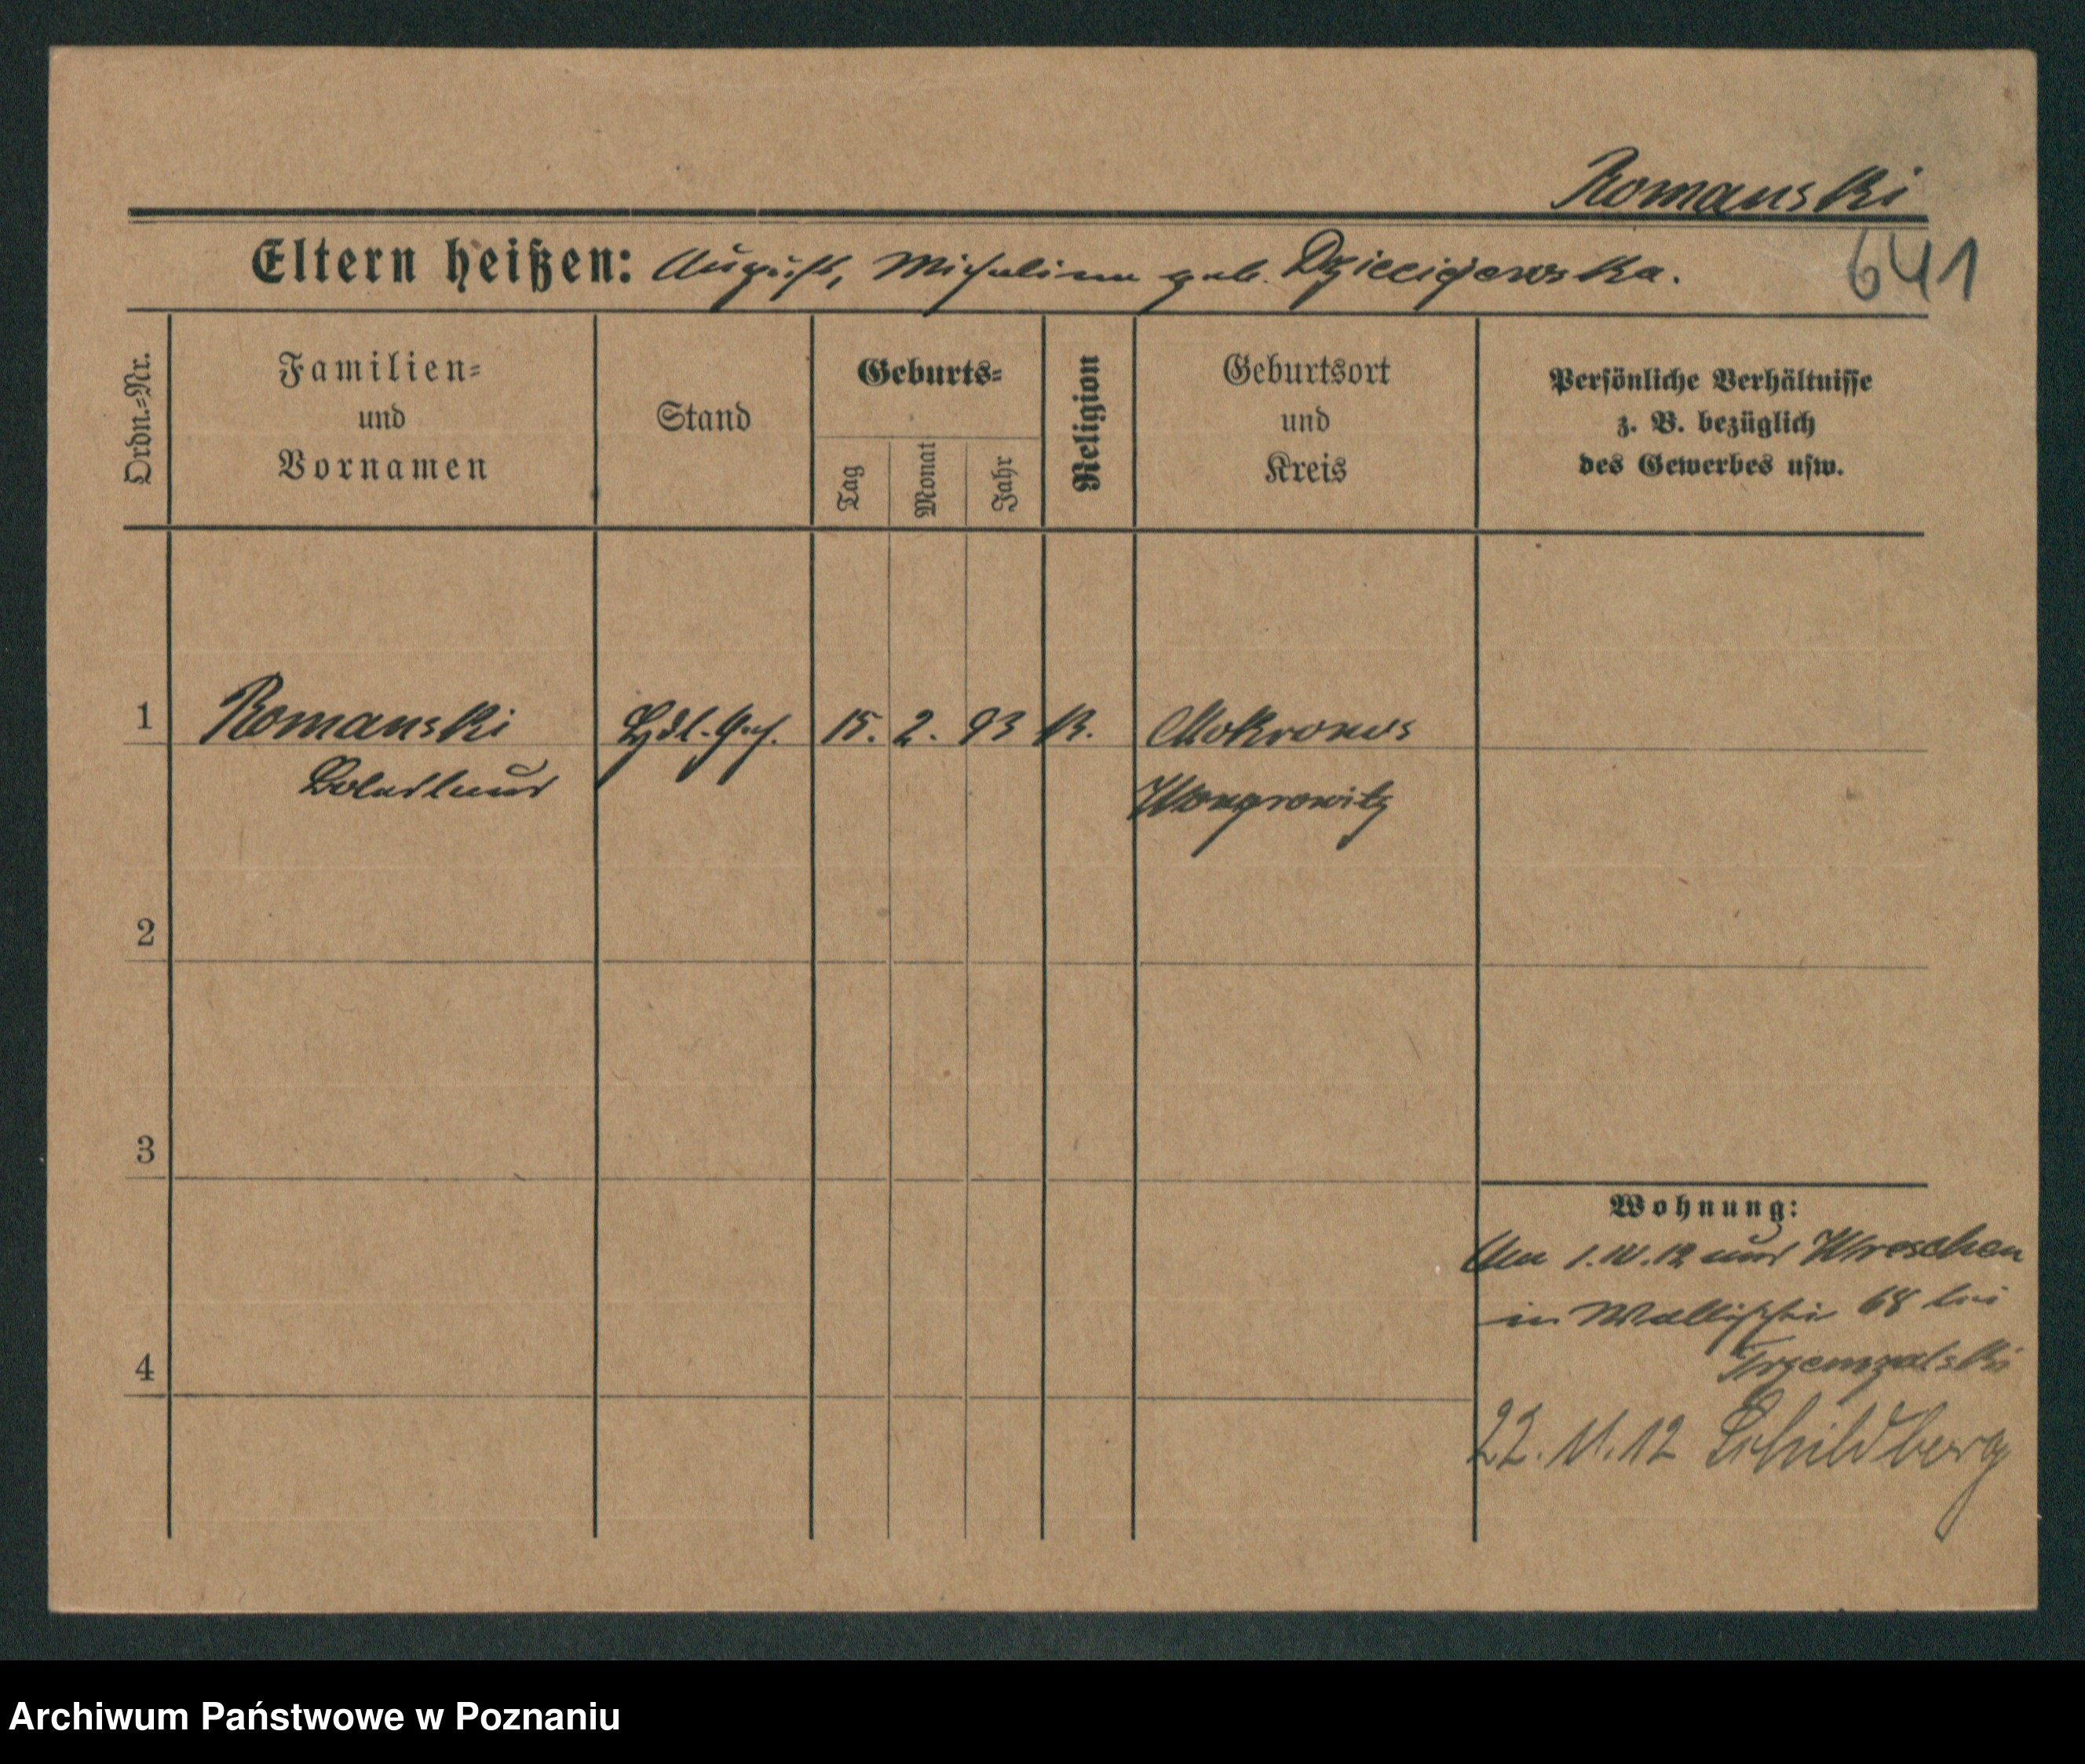 Romanski
Eltern heißen: August, Michalina geb. Dzieciejewska.
641
Ordn.-Nr.
Familien-
und
Vornamen
Stand
Geburts-
Tag
Monat
Jahr
Religion
Geburtsort
und
Kreis
Persönliche Verhältnisse
z. B. bezüglich
des Gewerbes usw.
1 Romanski Hdl. Geh. 15. 2. 93 K. Mokronos
Boleslaus Wongrowitz
2
3
4
Wohnung:
Am 1.10.12 aus Wreschen
in Wallischei 68 bei
22.11.12 Schildberg
Archiwum Państwowe w Poznaniu